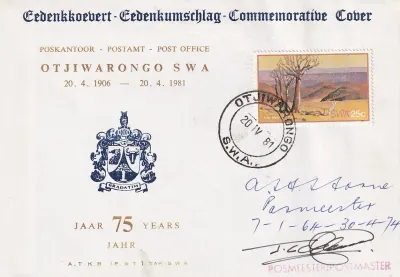 Gedenkkoevert - Gedenkumschlag - Commemorative Cover
POSKANTOOR - POSTAMT - POST OFFICE
OTJIWARONGO SWA
20. 4. 1906 — 20. 4. 1981
SWA 25c
OTJIWARONGO
20 IV 81
S.W.A.
GRADATIM
Posmeester
7-1-64-30-4-74
JAAR 75 YEARS
JAHR
POSMEESTER/POSTMASTER